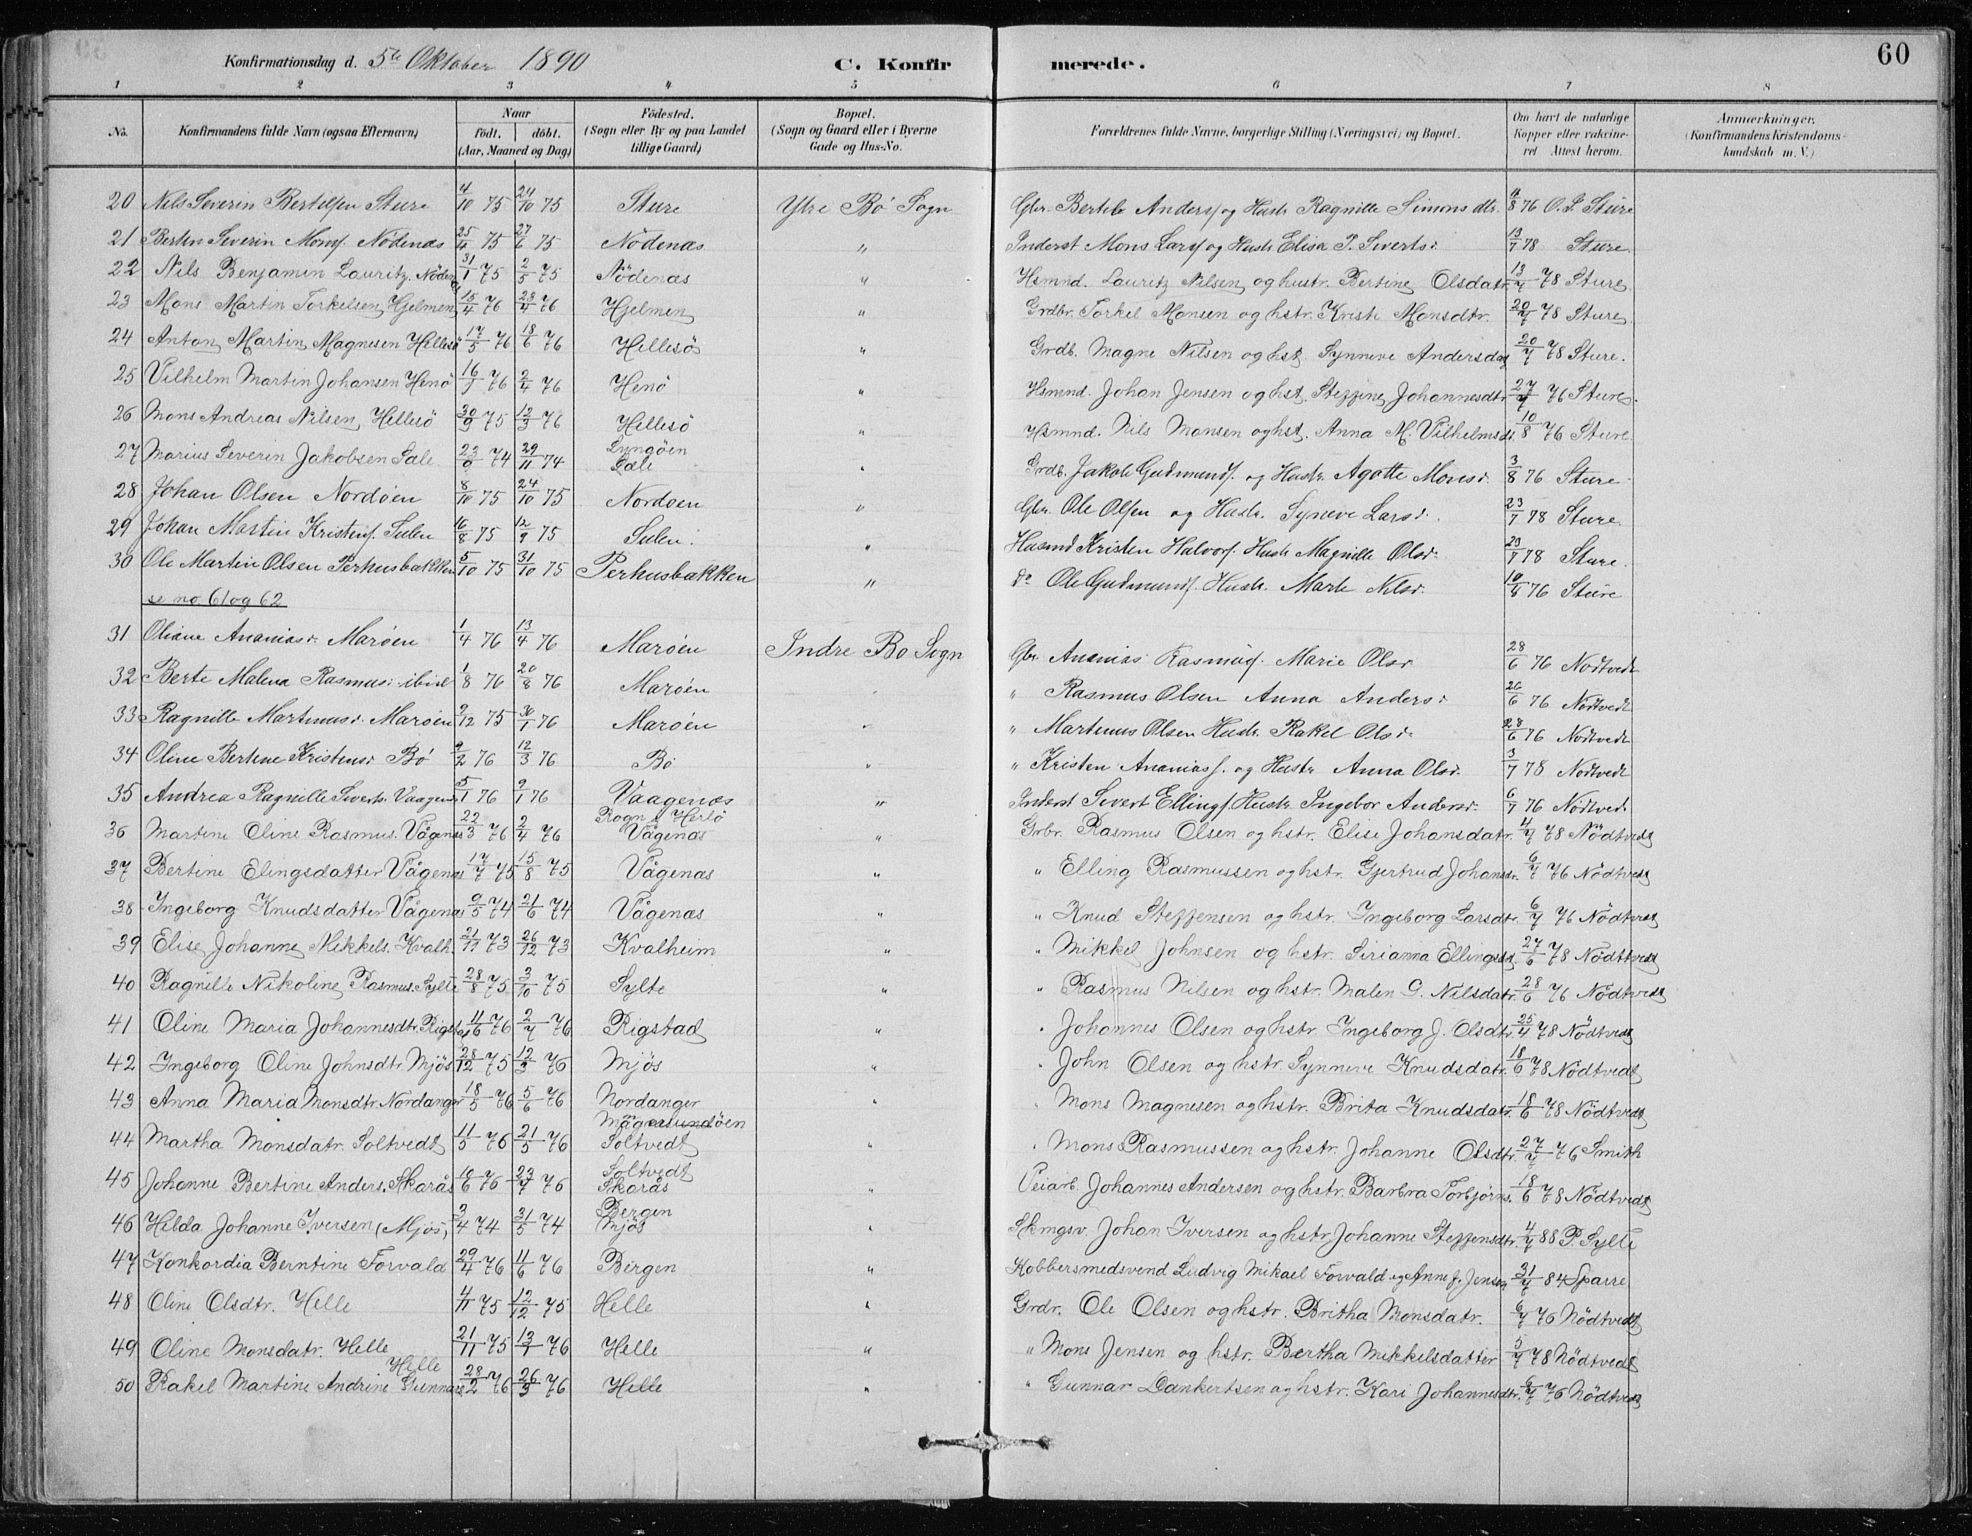 60
Konfirmationsdag d. 5te Oktober 1890 C. Konfir merede.
1 2 3 4 5 6 7 8
No. Konfirmandens fulde Navn (ogsaa Efternavn) Naar födt. döbt. (Aar, Maaned og Dag) Födested. (Sogn eller By og paa Landet tillige Gaard) Bopæl. (Sogn og Gaard eller i Byerne Gade og Hus-No. Forældrenes fulde Navne, borgerlige Stilling (Næringsvei) og Bopæl. Om havt de naturlige Kopper eller vakcineret. Attest herom. Anmærkninger. (Konfirmandens Kristendomskundskab m. V.)
20 Nils Severin Bertelsen Sture 4/10 75 24/10 75 Sture Ytre Bö Sogn Gbr. Bertel Anders. og Hustr. Ragnille Simonsdtr. 76 O. S. Sture
21 Severin Mons. Nödenæs 25/4 75 27/6 75 Nödenæs " Inderst Mons Lars. og Hustr. Elisa P. Siverts. 13/7 78 Sture
22 Nils Benjamin Lauritz. Nödenæs 31/1 75 2/5 75 Nödenæs " Hsmnd. Lauritz Nilsen og hustr. Bertine Olsdatr. 13/7 78 Sture
23 Mons Martin Torkelsen Hjelmen 15/4 76 23/4 76 Hjelmen " Grdbr. Torkel Monsen og hstr. Kristi Monsdtr. 20/7 78 Sture
24 Anton Martin Magnesen Hellesö 17/5 76 18/6 76 Hellesö " Grdb. Magne Nilsen og hst. Synneve Andersdag 20/7 78 Sture.
25 Vilhelm Martin Johansen Henö 76 2/4 76 Henö " Hsmnd. Johan Jensen og hst. Steffine Johannesdtr. 27/7 76 Sture.
26 Mons Andreas Nilsen Hellesö 30/9 75 12/3 76 Hellesö " Hsmnd. Nils Monsen og hst. Anna M. Vilhelmsdtr. 10/8 76 Sture
27 Marius Severin Jakobsen Sæle 23/9 74 29/11 74 Lyngöen Sæle " Grdb. Jakob Gudmunds. og Hustr. Agotte Monsd. 3/8 76 Sture
28 Johan Olsen Nordöen 8/10 75 24/10 75 Nordöen " Gbr. Ole Olsen og Hustr. Syneve Larsd. 23/7 78 Sture
29 Johan Martin Kristens. Sulen 16/8 75 12/9 75 Sulen. " Husmd Kristen Halvors. Hustr. Magnille Olsd. 23/7 78 Sture.
30 Ole Martin Olsen Perhusbakken 5/10 75 31/10 75 Perhusbakken " do Ole Gudmunds. Hustr. Marte Nilsd. 76 Sture
se no. 61 og 62
31 Oliane Ananiasd. Maröen 1/4 76 13/4 76 Maröen Indre Bo Sogn Gbr. Ananias Rasmus. Marie Olsd 28/6 76 Nödtvedt
32 Berte Malena Rasmusd. ibid 1/8 76 20/8 76 Maröen " " Rasmus Olsen Anna Andersd 26/6 76 Nödtvedt
33 Ragnille Martinusd. Maröen 9/12 75 30/1 76 Maröen " " Martinus Olsen Hustr. Rakel Olsd. 28/6 76 Nödtvedt
34 Oline Bertine Kristensd Bö 9/2 76 12/3 76 Bö " " Kristen Ananias. og Hustr. Anna Olsd. 3/7 78 Nödtvedt
35 Andrea Ragnille Siverts. Vaagenæs 5/1 76 9/1 76 Vaagenæs " Inderst Sivert Ellings. Hustr. Ingebor Andersd. 6/7 76 Nödtvedt
36 Martine Oline Rasmus. Vågenæs 22/3 76 2/4 76 Rogn i Herlö Vågenæs " Grbr. Rasmus Olsen og hstr. Elise Johansdatr. 4/7 78 Nödtvedt
37 Bertine Elingsdatter Vågenæs 17/7 75 15/8 75 Vågenæs " " Elling Rasmussen og hstr. Gjertrud Johansdr. 6/7 76 Nödtvedt
38 Ingeborg Knudsdatter Vågenæs 9/5 74 21/6 74 Vågenæs " " Knud Steffensen og hstr. Ingeborg Larsdtr. 6/7 76 Nödtvedt
39 Elise Johanne Mikkels. Kvalh. 21/11 73 26/12 73 Kvalheim " " Mikkel Johnsen og hstr. Sirianna Ellingsd. 27/6 78 Nödtvedt
40 Ragnille Nikoline Rasmus. Sylte 28/8 75 3/10 75 Sylte " " Rasmus Nilsen og hstr. Malen G. Nilsdatr. 28/6 76 Nödtvedt
41 Oline Maria Johannesdtr. Rigstad 11/6 76 2/7 76 Rigstad " " Johannes Olsen og hstr. Ingeborg J. Olsdtr. 25/4 78 Nödtvedt
42 Ingeborg Oline Johnsdtr. Mjös 28/12 75 12/3 76 Mjös " " John Olsen og hstr. Synneve Knudsdatr. 18/6 78 Nödtvedt
43 Anna Maria Monsdtr. Nordanger 18/5 76 5/6 76 Nordanger " " Mons Magnesen og hstr. Brita Knudsdatr. 18/6 78 Nödtvedt
44 Martha Monsdatr. Soltvedt 11/5 76 21/5 76 Soltvedt " " Mons Rasmussen og hstr. Johanne Olsdtr. 27/7 76 Smith
45 Johanne Bertine Anders. Skarås 18/6 76 23/7 76 Soltvedt Skarås " Veiarb. Johannes Andersen og hstr. Barbra Torbjörns. 18/6 78 Nödtvedt
46 Helda Johanne Iversen (Mjös) 3/4 74 31/5 74 Bergen Mjös " Skmgsv. Johan Iversen og hstr. Johanne Steffensdtr. 4/7 88 P. Sylte
47 Konkordia Berntine Forvald 29/4 76 11/6 76 Bergen " Kobbersmedsvend Ludvig Mikael Forvald og Anne J. Jensen 31/7 84 Sparre
48 Oline Olsdtr. Helle 4/11 75 12/12 75 Helle " Grdr. Ole Olsen og hstr. Britha Monsdatr. 6/7 76 Nödtvedt
49 Oline Monsdatr. Helle 21/11 75 13/1 76 Helle " " Mons Jensen og hstr. Bertha Mikkelsdatter 5/7 78 Nödtvedt
50 Rakel Martine Andrine Gunnars Helle 28/2 76 26/3 76 Helle " " Gunnar Dankertsen og hstr. Kari Johannesdtr. 6/7 76 Nödtvedt